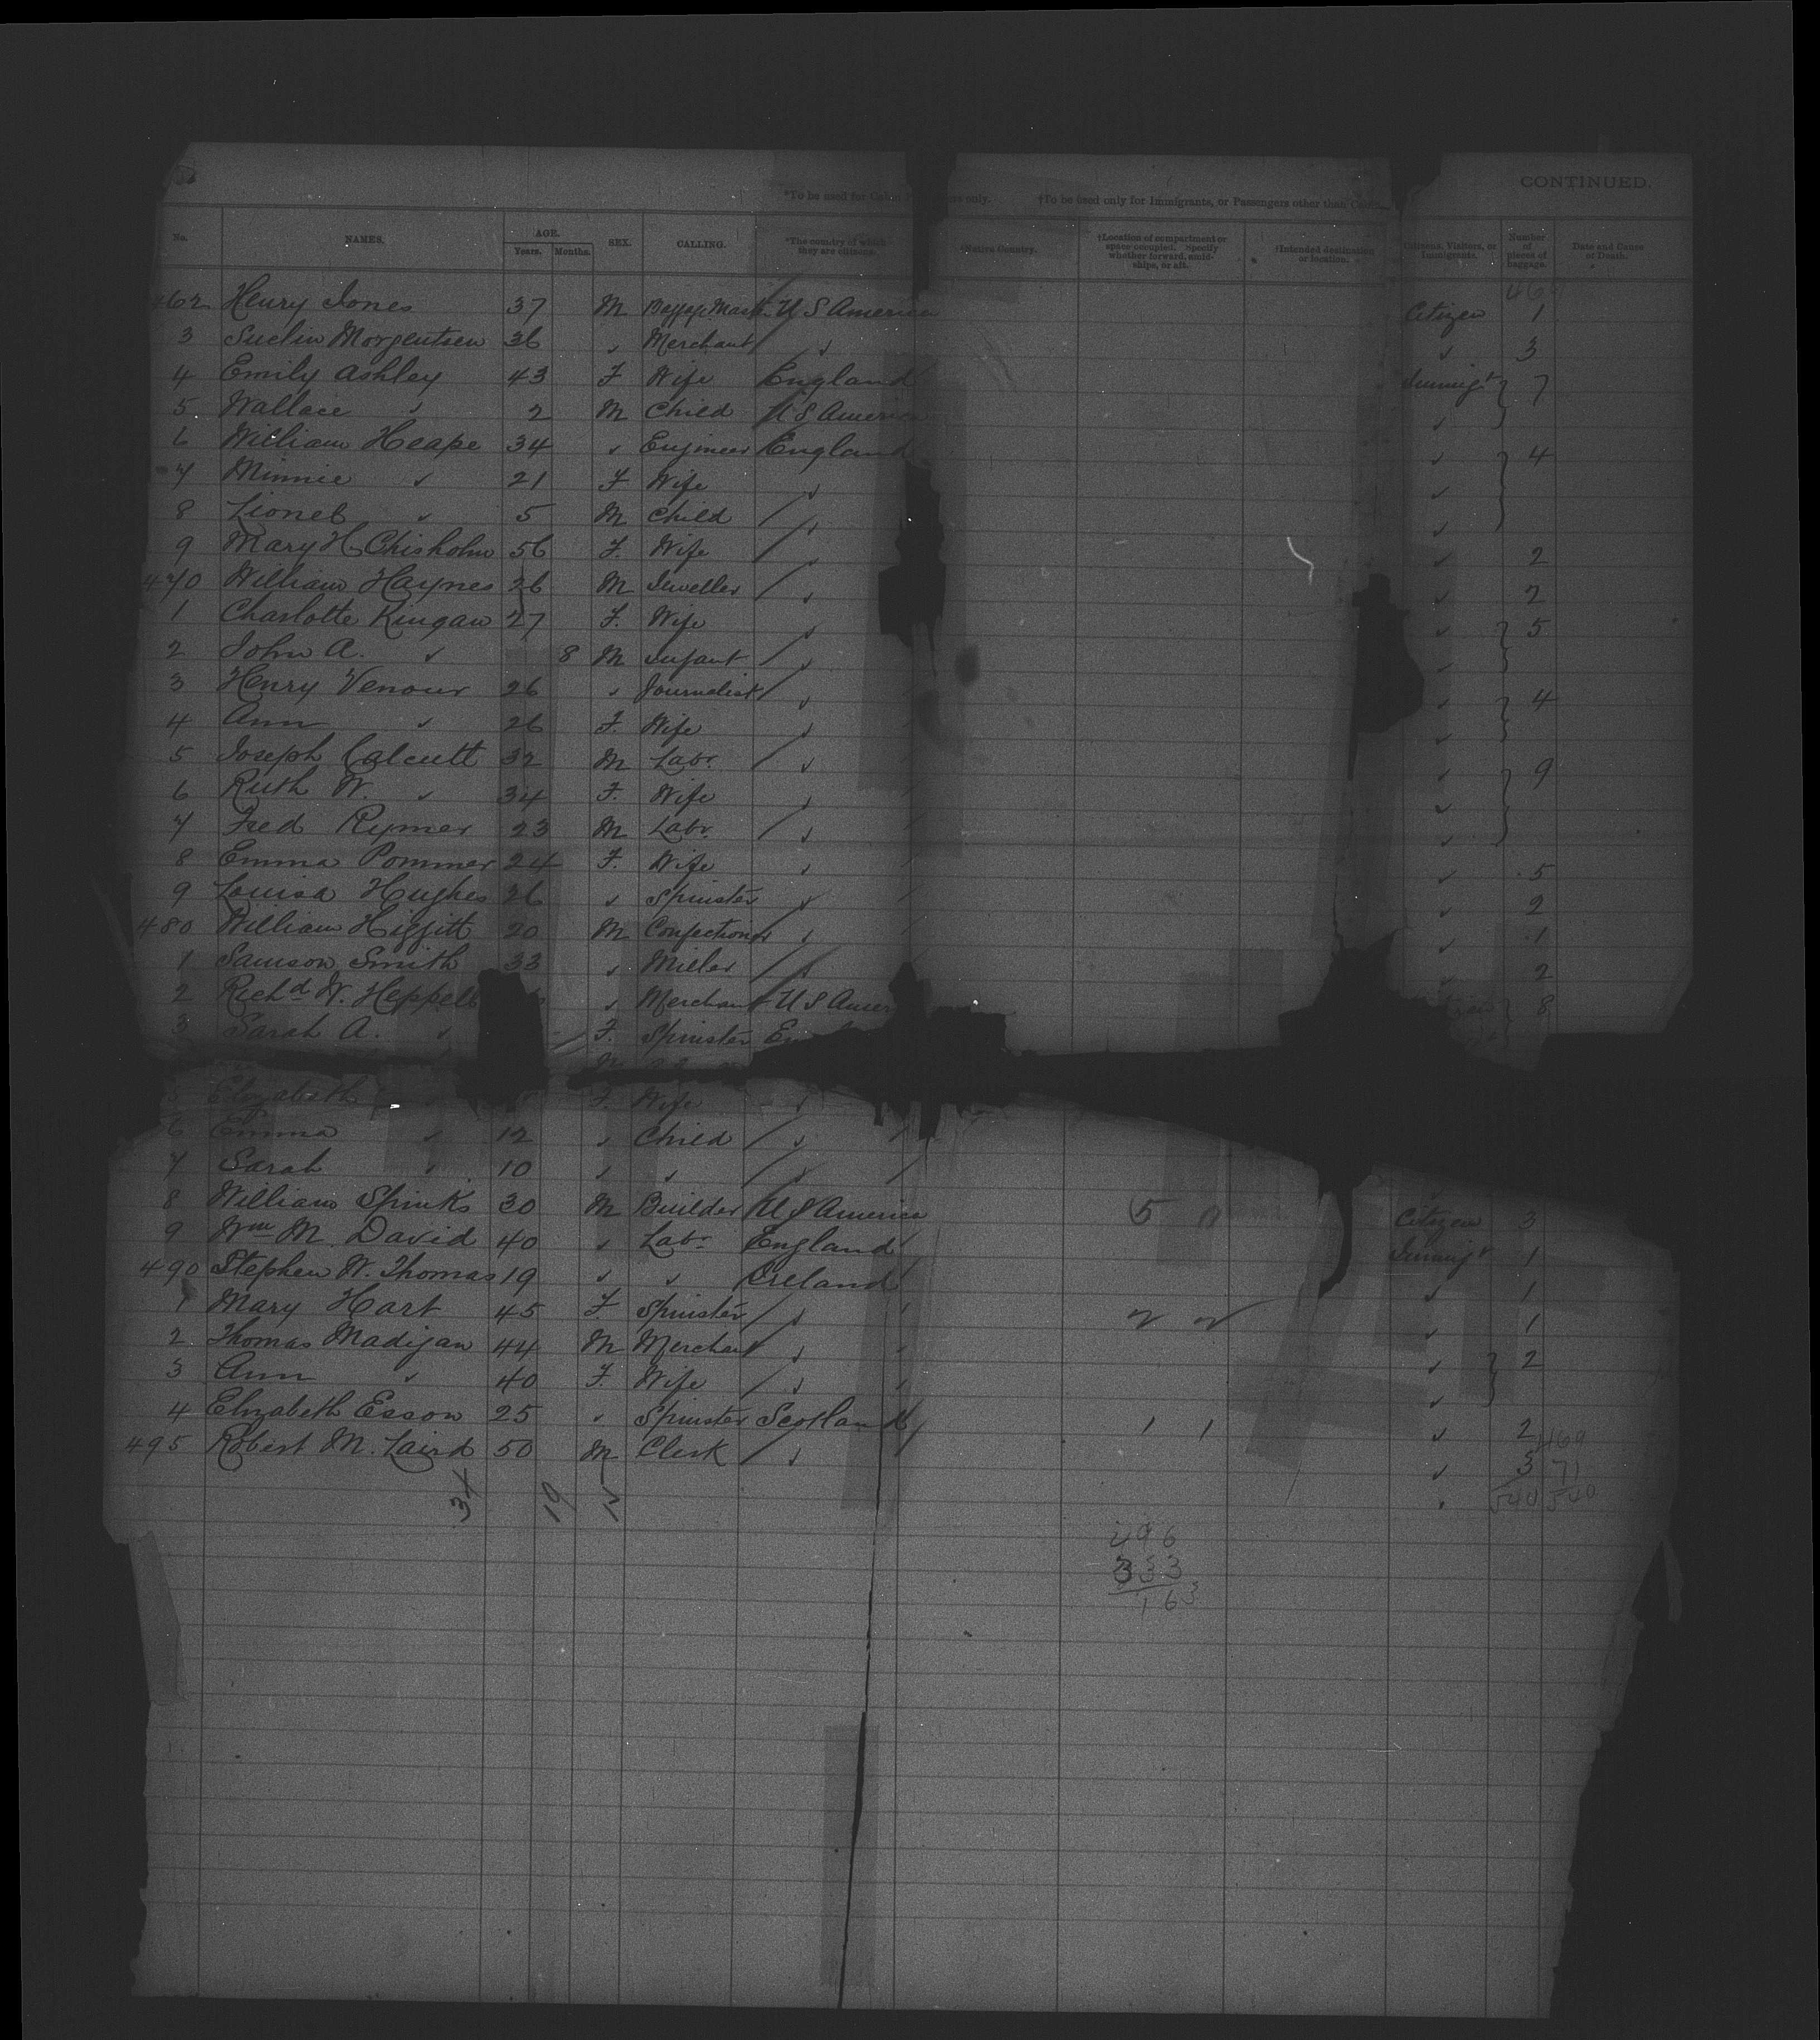 CONTINUED.
*To be used for Cabin only. †To be used only for Immigrants, or Passengers other than
No. NAMES. AGE. Years. Months. SEX. CALLING. *The country of which they are citizens. †Native Country. †Location of compartment or space occupied. Specify whether forward, amidships, or aft. †Intended destination or location. Citizens, Visitors, or Immigrants. Number of pieces of baggage. Date and Cause of Death.
462 Henry Jones 37 M U S America Citizen 1
3 Morgentsen 36 ✓ Merchant ✓ ✓ 3
4 Emily Ashley 43 F Wife England Immigt 7
5 Wallace ✓ 2 M Child U S America ✓
6 William Heape 34 ✓ Engineer England ✓ 4
7 Minnie ✓ 21 F Wife ✓ ✓
8 Lionel ✓ 5 M Child ✓ ✓
9 Mary H Chisholm 56 F. Wife ✓ ✓ 2
470 William Haynes 26 M Jeweller ✓ ✓ 2
1 Charlotte Kingan 27 F. Wife ✓ ✓ 5
2 John A. ✓ 8 M Infant ✓ ✓
3 Henry Venour 26 ✓ Journalist ✓ ✓ 4
4 Ann ✓ 26 F. Wife ✓ ✓
5 Joseph Calcutt 32 M Labr ✓ ✓ 9
6 Ruth W. ✓ 34 F. Wife ✓ ✓
7 Fred Rymer 23 M Labr ✓ ✓
8 Emma Pommer 24 F. Wife ✓ ✓ 5
9 Louisa Hughes 26 ✓ Spinster ✓ ✓ 2
480 William Higgitt 20 M Confectioner ✓ ✓ 1
1 Samson Smith 33 ✓ Miller ✓ ✓ 2
2 Richd W. Heppell ✓ Merchant U S Amer 8
3 Sarah A. ✓ F. Spinster En
M
5 Elizabeth F. Wife ✓
6 Emma ✓ 12 ✓ Child ✓
7 Sarah ✓ 10 ✓ ✓ ✓
8 William Spinks 30 M Builder U S America 5 Citizen 3
9 Wm M. David 40 ✓ Labr England Immigt 1
490 Stephen W. Thomas 19 ✓ ✓ Ireland ✓ 1
1 Mary Hart 45 F. Spinster ✓ 2 2 ✓ 1
2 Thomas Madigan 44 M Merchant ✓ ✓ 2
3 Ann ✓ 40 F. Wife ✓ ✓
4 Elizabeth Esson 25 ✓ Spinster Scotland 1 1 ✓ 2 469
495 Robert M. Laird 50 M Clerk ✓ ✓ 3 71
34 19 15 540 540
496
333
163